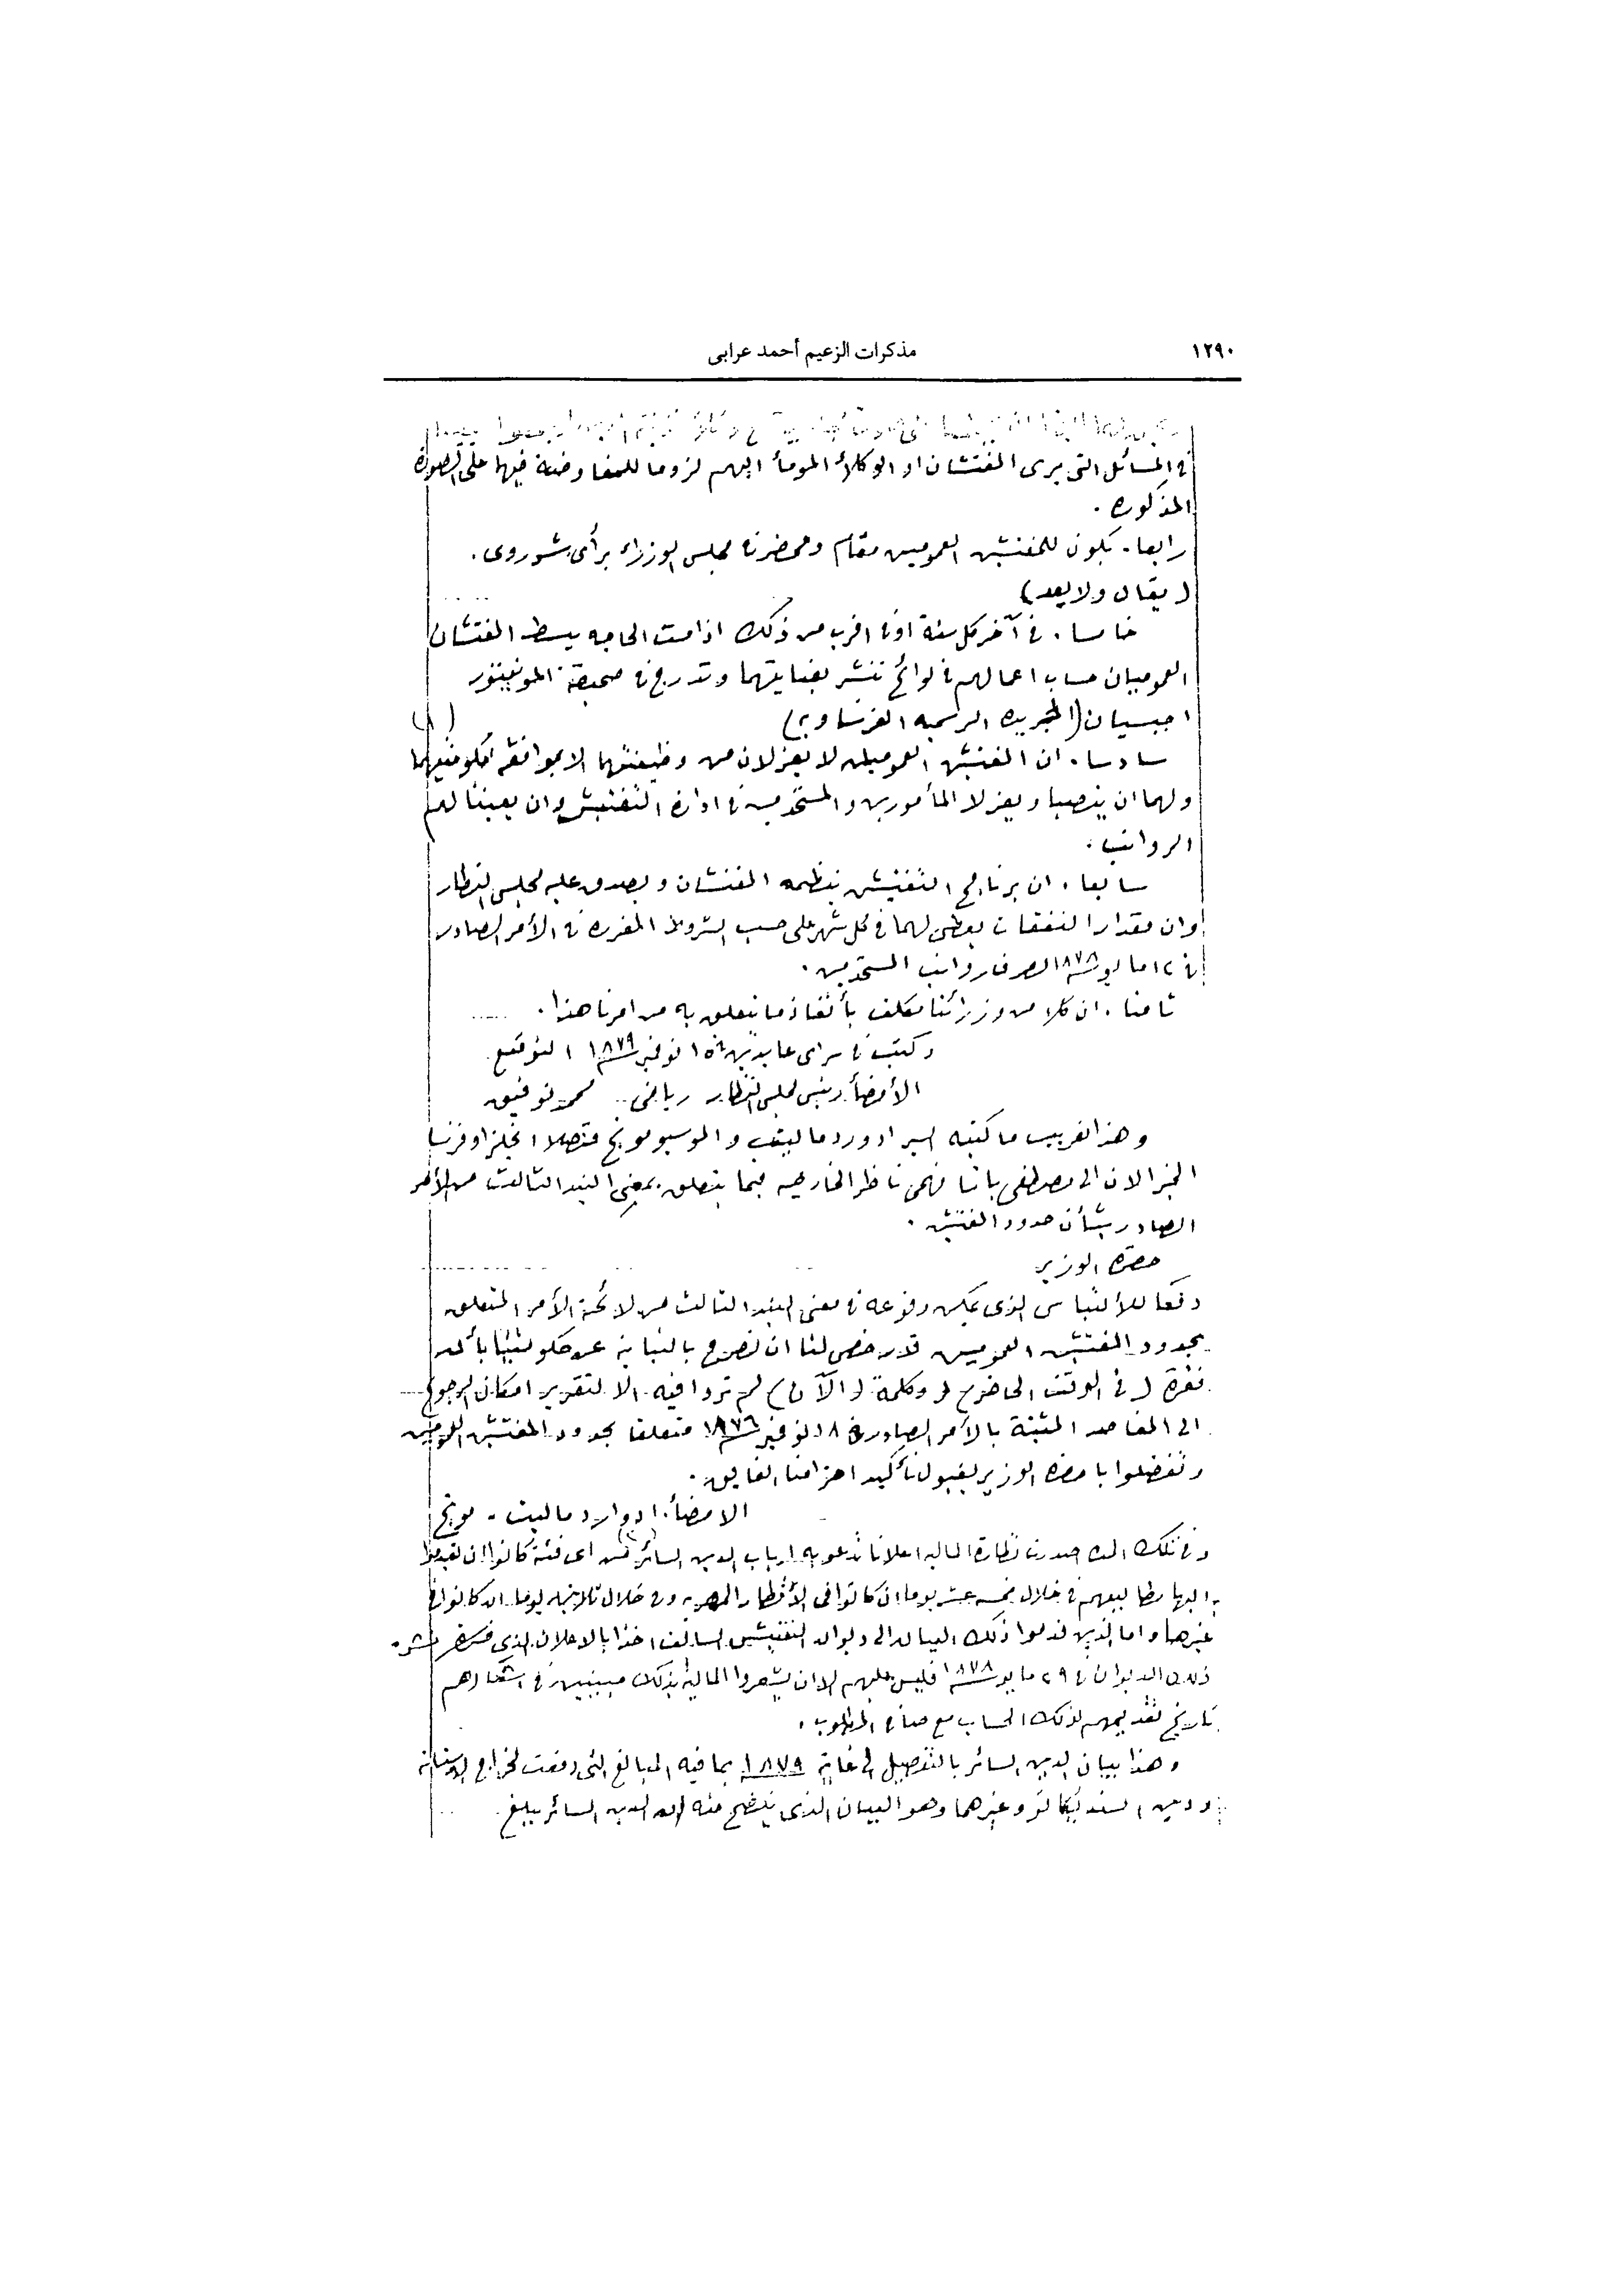 ١٢٩٠
مذكرات الزعيم أحمد عرابى
فى المسائل التى يرى المفتشان او الوكلاء المومأ اليهم لزوما للمفاوضة فيها على الصورة
المذكوره .
رابعا . يكون للمفتشين العموميين مقام ومحضر فى مجلس الوزراء برأى شوروى .
( يقال ولا يعد )
خامسا . فى آخر كل سنة او فى اقرب من ذلك اذا مست الحاجه يبسط المفتشان
العموميان حساب اعمالهم فى لوائح تنشر بعنايتهما وتدرج فى صحيفة المونيتور
اجبسيان (الجريده الرسميه الفرنساويه) (١)
سادسا . ان المفتشين العموميين لا يعزلان من وظيفتهما الا بموافقة حكومتيهما
ولهما ان ينصبا ويعزلا المأمورين والمستخدمين فى ادارة التفتيش وان يعينا لهم
الرواتب .
سابعا . ان برنامج التفتيش ينظمه المفتشان ويصدق عليه مجلس النظار
وان مقدار النفقات يعطى لهما فى كل شهر على حسب الشروط المقرره فى الأمر الصادر
فى ١٢ مايو ١٨٧٨ لصرف رواتب المستخدمين .
ثامنا . ان كلا من وزرائنا مكلف بأنفاذ ما يتعلق به من امرنا هذا .
وكتب فى سراى عابدين ١٥ نوفمبر ١٨٧٩ التوقيع
الأمضأ رئيس مجلس النظار رياض .. محمد توفيق
وهذا تعريب ما كتبه السير ادورد ماليت والموسيو مونج قنصلا انجلترا وفرنسا
الجنرالان الى مصطفى باشا فهمى ناظر الخارجيه فيما يتعلق بمعنى البند الثالث من الأمر
الصادر بشأن حدود المفتشين .
حضرة الوزير
دفعا للألتباس الذى يمكن وقوعه فى معنى البند الثالث من لائحة الأمر المتعلق
بحدود المفتشين العموميين قد رخص لنا ان نصرح بالنيابة عن حكومتينا بأن
فقرة ( فى الوقت الحاضر ) وكلمة ( الآن ) لم تردا فيه الا لتقرير امكان الرجوع
الى المقاصد المثبتة بالأمر الصادر فى ١٨ نوفمبر ١٨٧٦ متعلقا بحدود المفتشين العموميين
وتفضلوا يا حضرة الوزير بقبول تأكيد احترامنا الفايق .
الامضأ . ادوارد ماليت - مونج
وفى تلك المده اصدرت نظارة الماليه اعلانا تدعو به ارباب الدين السائر من اى فئة كانوا ان يقدموا
اليها مطاليبهم فى خلال خمسة عشر يوما ان كانوا فى الأقطار المصريه وفى خلال ثلاثين يوما ان كانوا فى
غيرها واما الذين قدموا ذلك البيان الى ديوان التفتيش السالف اخذا بالاعلان الذى نشره
ذلك الديوان فى ٢٩ مايو ١٨٧٨ فليس عليهم الا ان يشعروا الماليه بذلك مبينين فى اشعارهم
تاريخ تقديمهم لذلك الحساب مع صافى المطلوب .
وهذا بيان الدين السائر بالتفصيل الى غاية ١٨٧٩ بما فيه المبالغ التى دفعت لخراج الاستانه
ودين السنديكاتو وغيرهما وهو البيان الذى يتضح منه ان الدين السائر يبلغ